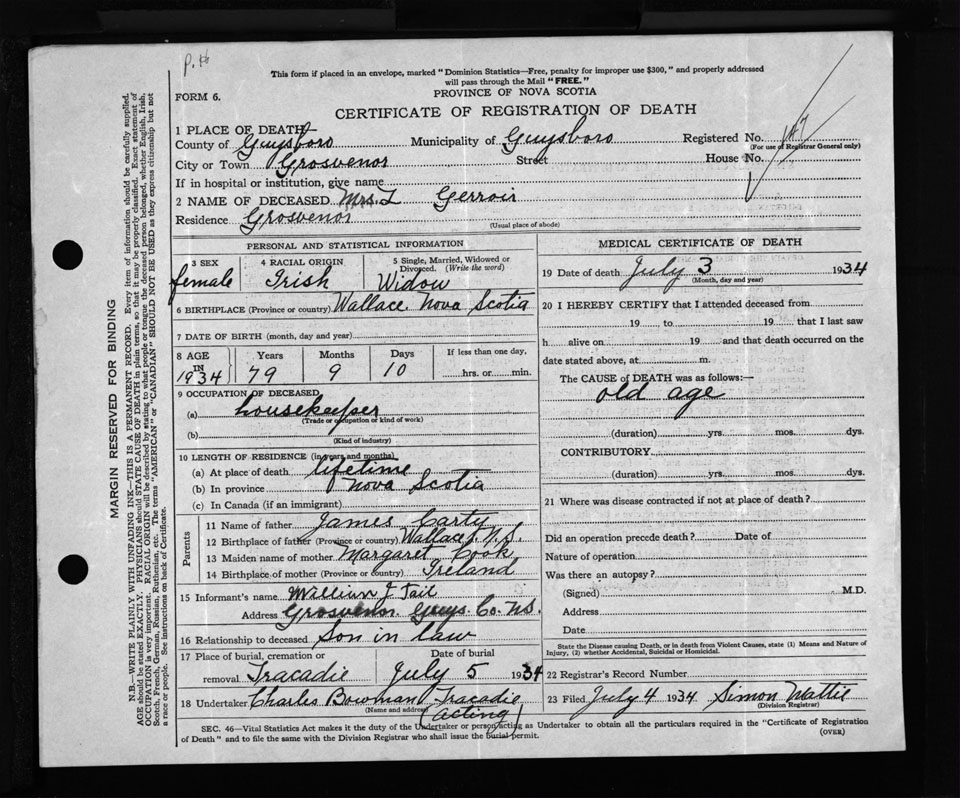 P.H
This form if placed in an envelope, marked "Dominion Statistics—Free, penalty for improper use $300," and properly addressed
will pass through the Mail "FREE."
PROVINCE OF NOVA SCOTIA
FORM 6.
CERTIFICATE OF REGISTRATION OF DEATH
1 PLACE OF DEATH
County of Guysboro Municipality of Guysboro Registered No.
(For use of Registrar General only)
City or Town Grosvenor Street House No.
If in hospital or institution, give name
2 NAME OF DECEASED Mrs. L Gerroir
Residence Grosvenor
(Usual place of abode)
PERSONAL AND STATISTICAL INFORMATION
3 SEX 4 RACIAL ORIGIN 5 Single, Married, Widowed or Divorced. (Write the word)
female Irish Widow
6 BIRTHPLACE (Province or country) Wallace Nova Scotia
7 DATE OF BIRTH (month, day and year)
8 AGE IN 1934 Years Months Days If less than one day,
79 9 10 hrs. or min.
9 OCCUPATION OF DECEASED
(a) housekeeper
(Trade or occupation or kind of work)
(b)
(Kind of industry)
10 LENGTH OF RESIDENCE (in years and months)
(a) At place of death lifetime
(b) In province Nova Scotia
(c) In Canada (if an immigrant)
Parents
11 Name of father James Carty
12 Birthplace of father (Province or country) Wallace N.S.
13 Maiden name of mother Margaret Cook
14 Birthplace of mother (Province or country) Ireland
15 Informant's name William J. Tait
Address Grosvenor Guys. Co. N.S.
16 Relationship to deceased Son in law
17 Place of burial, cremation or removal Date of burial
Tracadie July 5 1934
18 Undertaker Charles Bowman Tracadie
(Name and address) (acting)
MEDICAL CERTIFICATE OF DEATH
19 Date of death July 3 1934
(Month, day and year)
20 I HEREBY CERTIFY that I attended deceased from
19 , to 19 that I last saw
h alive on 19 and that death occurred on the
date stated above, at m.
The CAUSE of DEATH was as follows:—
old age
(duration) yrs. mos. dys.
CONTRIBUTORY
(duration) yrs. mos. dys.
21 Where was disease contracted if not at place of death?
Did an operation precede death? Date of
Nature of operation
Was there an autopsy?
(Signed) M.D.
Address
Date
State the Disease causing Death, or in death from Violent Causes, state (1) Means and Nature of
Injury, (2) whether Accidental, Suicidal or Homicidal.
22 Registrar's Record Number
23 Filed July 4 1934 Simon Mattie
(Division Registrar)
SEC. 46—Vital Statistics Act makes it the duty of the Undertaker or person acting as Undertaker to obtain all the particulars required in the "Certificate of Registration
of Death" and to file the same with the Division Registrar who shall issue the burial permit.
(OVER)
MARGIN RESERVED FOR BINDING
N.B.—WRITE PLAINLY WITH UNFADING INK—THIS IS A PERMANENT RECORD. Every item of information should be carefully supplied.
AGE should be stated EXACTLY. PHYSICIANS should STATE CAUSE OF DEATH in plain terms, so that it may be properly classified. Exact statement of
OCCUPATION is very important. RACIAL ORIGIN will be described by stating to what people or tongue the deceased person belonged, whether English, Irish,
Scotch, French, German, Russian, Ruthenian, etc. The terms "AMERICAN" or "CANADIAN" SHOULD NOT BE USED as they express citizenship but not
a race or people. See instructions on back of Certificate.